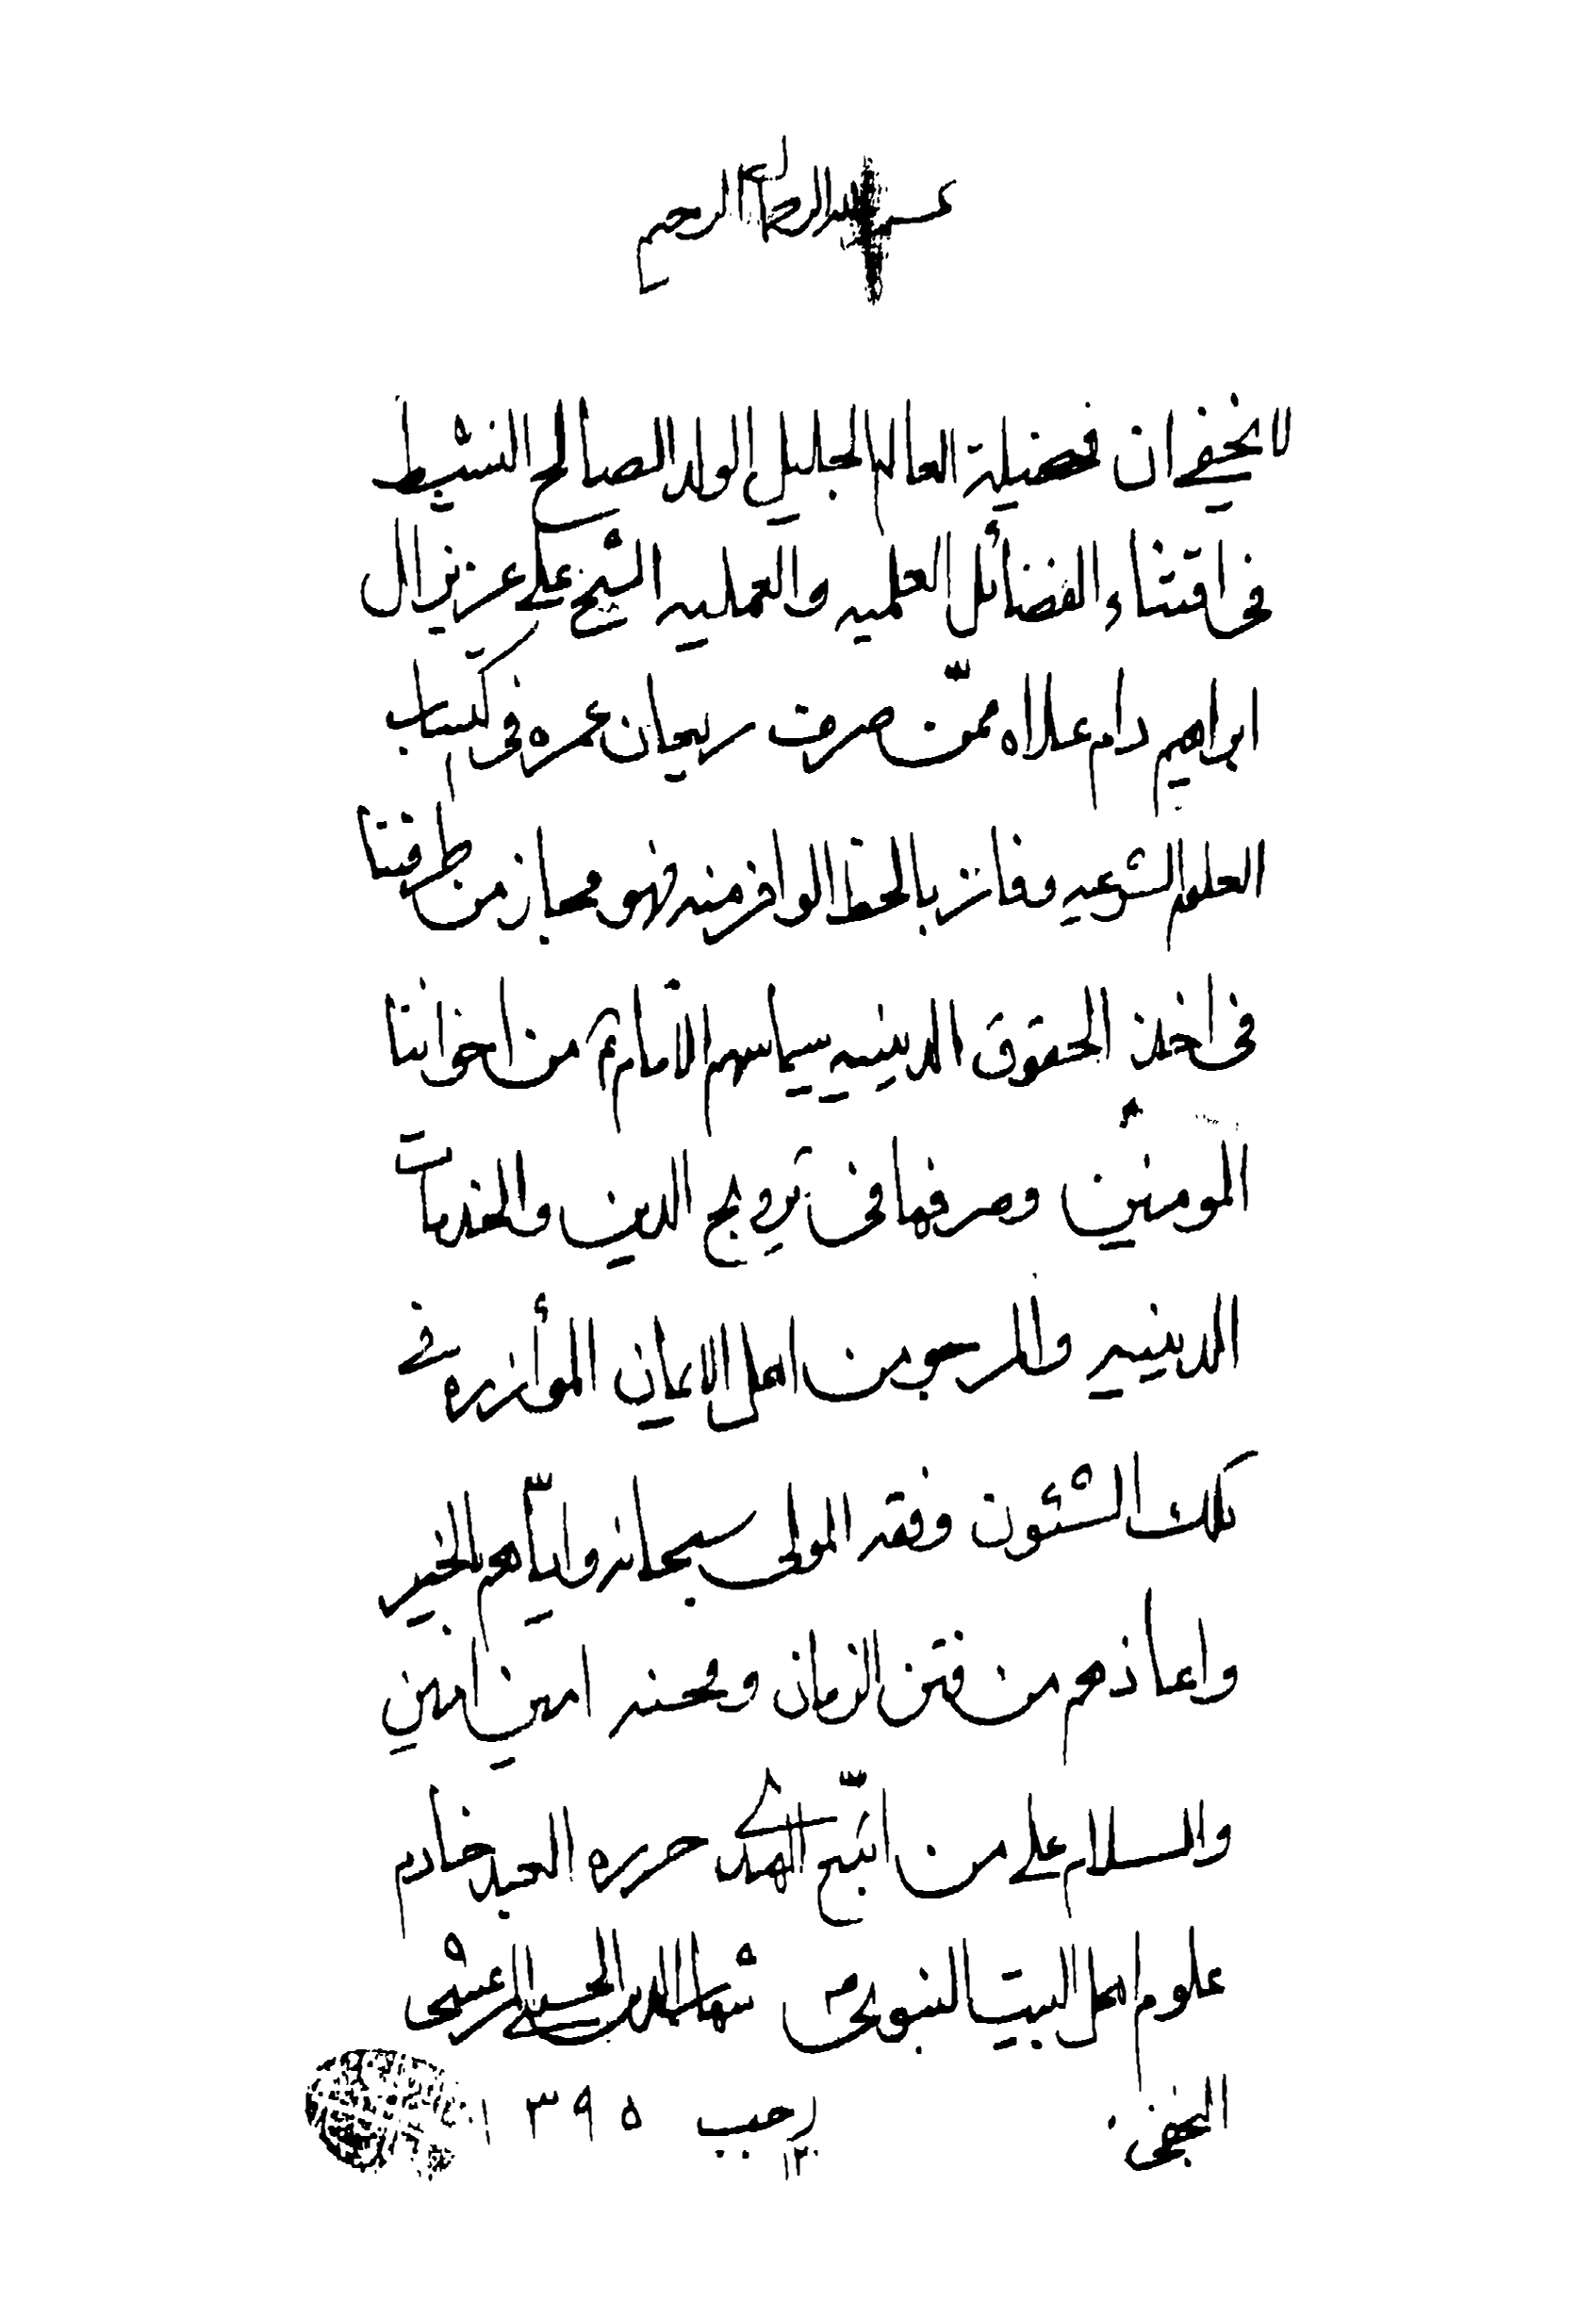 بسم الله الرحمن الرحيم
لا يخفى ان فضيلة العالم الجليل الولد الصالح النشيط
فى اقتناء الفضائل العلميه والعمليه الشيخ على عزيز ال
ابراهيم دام علاه ممّن صرف ريعان عمره فى اكتساب
العلوم الشرعيه وفاز بالحظ الوافر منه فهو مجاز من طرفنا
فى اخذ الحقوق الدينيه سيما سهم الامام ع من اخواننا
المومنين وصرفها فى ترويج الدين والخدمات
الدينيه والمرجو من اهل الايمان المؤازره فى
تلك الشئون وفقه المولى سبحانه واياّهم للخير
واعاذهم من فتن الزمان ومحنه امين امين
والسلام على من اتبّع الهدى حرره العبد خادم
علوم اهل البيت النبوى ص شهاب الدين الحسينى المرعشى
النجفى . ١٢ رجب ١٣٩٥